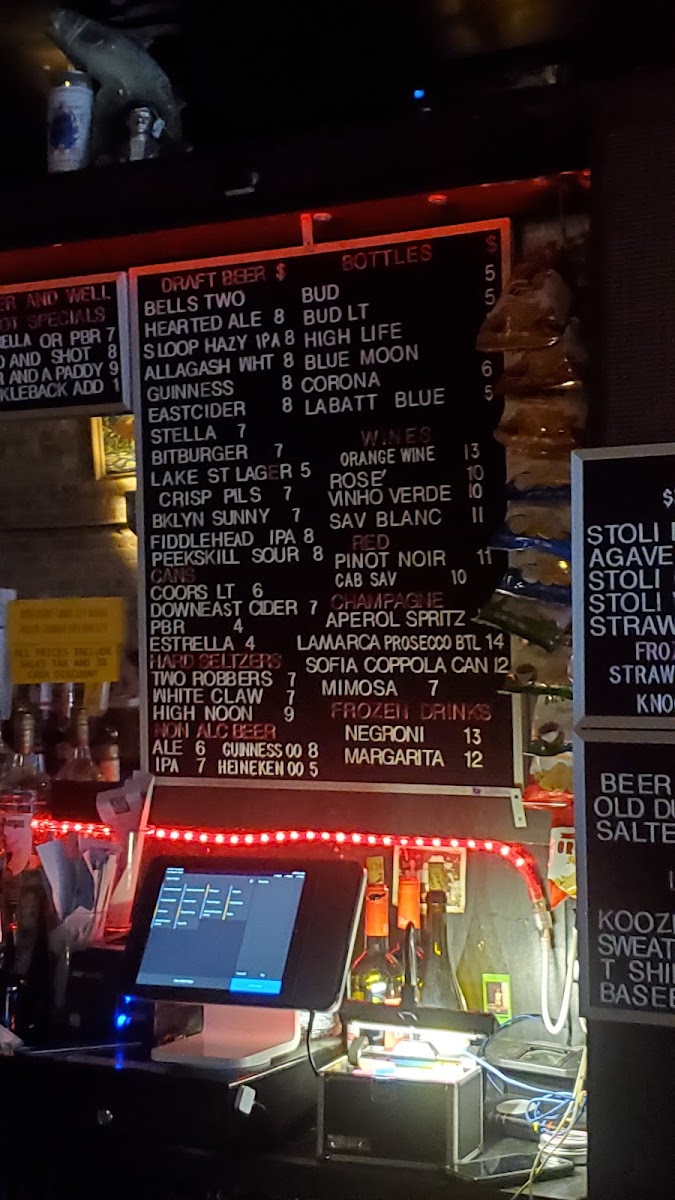 ER AND WELL
OT SPECIALS
ELLA OR PBR 7
D AND SHOT 8
R AND A PADDY 9
KLEBACK ADD 1
DRAFT BEER $
BELLS TWO
HEARTED ALE 8
SLOOP HAZY IPA 8
ALLAGASH WHT 8
GUINNESS 8
EASTCIDER 8
STELLA 7
BITBURGER 7
LAKE ST LAGER 5
CRISP PILS 7
BKLYN SUNNY 7
FIDDLEHEAD IPA 8
PEEKSKILL SOUR 8
CANS
COORS LT 6
DOWNEAST CIDER 7
PBR 4
ESTRELLA 4
HARD SELTZERS
TWO ROBBERS 7
WHITE CLAW 7
HIGH NOON 9
NON ALC BEER
ALE 6 GUINNESS 00 8
IPA 7 HEINEKEN 00 5
BOTTLES $
BUD 5
BUD LT 5
HIGH LIFE
BLUE MOON
CORONA 6
LABATT BLUE 5
WINES
ORANGE WINE 13
ROSE' 10
VINHO VERDE 10
SAV BLANC 11
RED
PINOT NOIR 11
CAB SAV 10
CHAMPAGNE
APEROL SPRITZ
LAMARCA PROSECCO BTL 14
SOFIA COPPOLA CAN 12
MIMOSA 7
FROZEN DRINKS
NEGRONI 13
MARGARITA 12
ALL PRICES INCLUDE
SALES TAX AND 3%
CASH DISCOUNT
$
STOLI
AGAVE
STOLI
STOLI
STRAW
FROZ
STRAW
KNO
BEER
OLD DU
SALTE
KOOZI
SWEAT
T SHI
BASEB